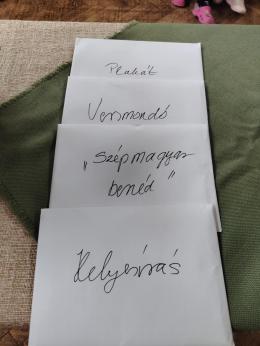 Plakát
Versmondó
„Szépmagyar
benéd”
Helyesírás